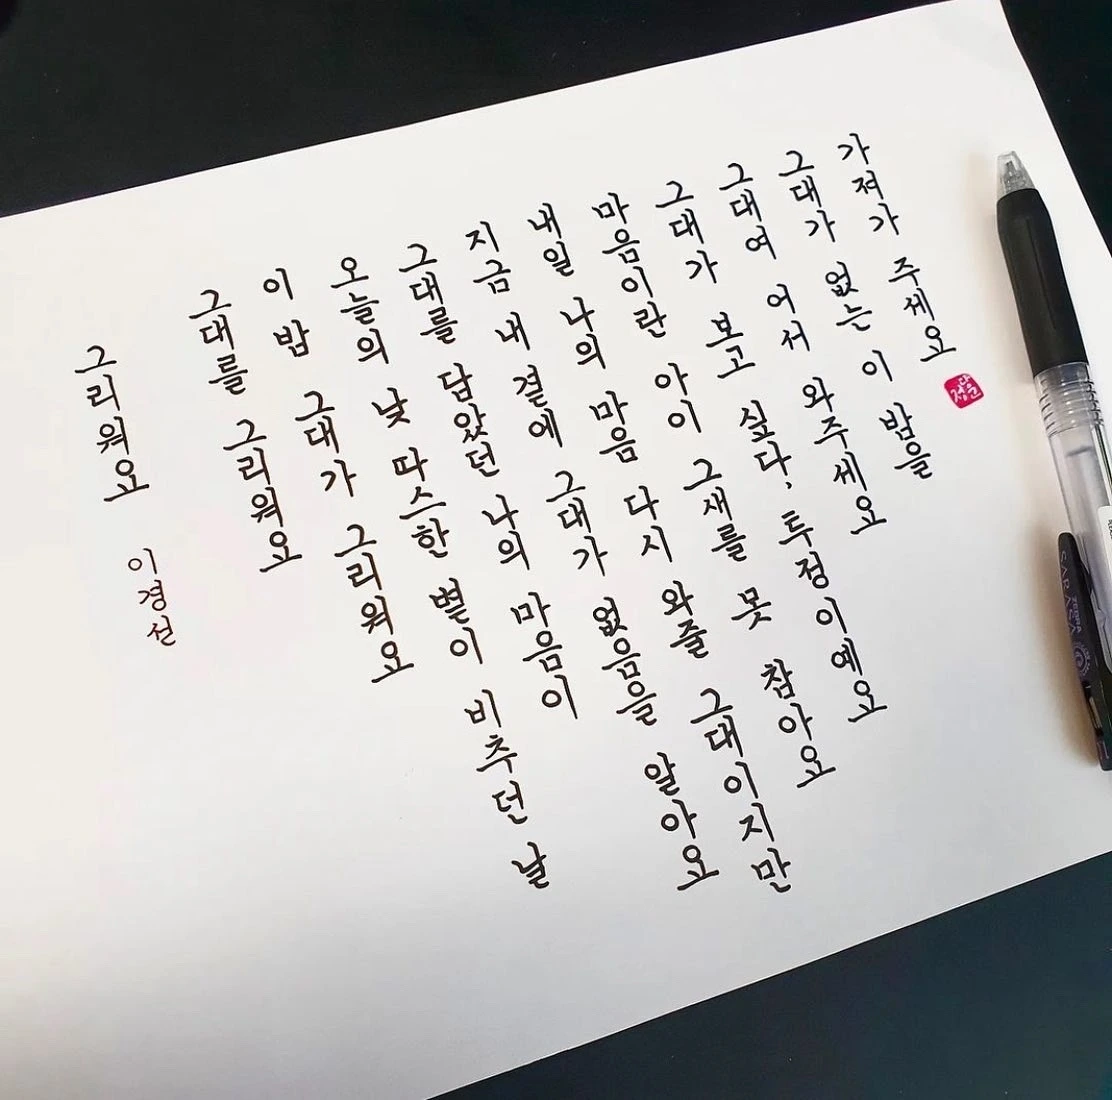 그리워요 이경선
그대를 그리워요
이 밤 그대가 그리워요
오늘의 낮 따스한 볕이 비추던 날
그대를 담았던 나의 마음이
지금 내 곁에 그대가 없음을 알아요
내일 나의 마음 다시 와줄 그대이지만
마음이란 아이 그새를 못 참아요
그대가 보고 싶다, 투정이예요
그대여 어서 와주세요
그대가 없는 이 밤을
가져가 주세요
ZEBRA
SARASA